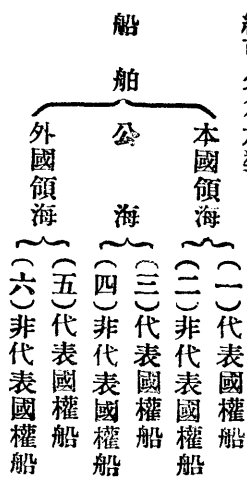 船舶
本國領海
(一)代表國權船
(二)非代表國權船
公海
(三)代表國權船
(四)非代表國權船
外國領海
(五)代表國權船
(六)非代表國權船